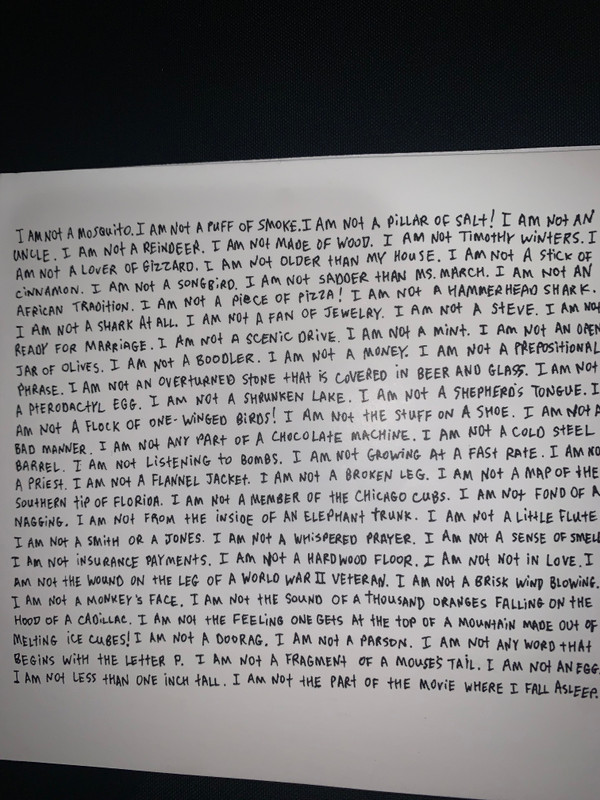 I AM NOT A MOSQUITO. I AM NOT A PUFF OF SMOKE. I AM NOT A PILLAR OF SALT! I AM NOT AN
UNCLE. I AM NOT A REINDEER. I AM NOT MADE OF WOOD. I AM NOT TIMOTHY WINTERS. I
AM NOT A LOVER OF GIZZARD. I AM NOT OLDER THAN MY HOUSE. I AM NOT A STICK OF
CINNAMON. I AM NOT A SONGBIRD. I AM NOT SADDER THAN MS. MARCH. I AM NOT AN
AFRICAN TRADITION. I AM NOT A PIECE OF PIZZA! I AM NOT A HAMMERHEAD SHARK.
I AM NOT A SHARK AT ALL. I AM NOT A FAN OF JEWELRY. I AM NOT A STEVE. I AM NOT
READY FOR MARRIAGE. I AM NOT A SCENIC DRIVE. I AM NOT A MINT. I AM NOT AN OPEN
JAR OF OLIVES. I AM NOT A BOODLER. I AM NOT A MONEY. I AM NOT A PREPOSITIONAL
PHRASE. I AM NOT AN OVERTURNED STONE THAT IS COVERED IN BEER AND GLASS. I AM NOT
A PTERODACTYL EGG. I AM NOT A SHRUNKEN LAKE. I AM NOT A SHEPHERD'S TONGUE. I
AM NOT A FLOCK OF ONE-WINGED BIRDS! I AM NOT THE STUFF ON A SHOE. I AM NOT A
BAD MANNER. I AM NOT ANY PART OF A CHOCOLATE MACHINE. I AM NOT A COLD STEEL
BARREL. I AM NOT LISTENING TO BOMBS. I AM NOT GROWING AT A FAST RATE. I AM NO
A PRIEST. I AM NOT A FLANNEL JACKET. I AM NOT A BROKEN LEG. I AM NOT A MAP OF THE
SOUTHERN TIP OF FLORIDA. I AM NOT A MEMBER OF THE CHICAGO CUBS. I AM NOT FOND OF A
NAGGING. I AM NOT FROM THE INSIDE OF AN ELEPHANT TRUNK. I AM NOT A LITTLE FLUTE
I AM NOT A SMITH OR A JONES. I AM NOT A WHISPERED PRAYER. I AM NOT A SENSE OF SMELL
I AM NOT INSURANCE PAYMENTS. I AM NOT A HARDWOOD FLOOR. I AM NOT NOT IN LOVE. I
AM NOT THE WOUND ON THE LEG OF A WORLD WAR II VETERAN. I AM NOT A BRISK WIND BLOWING.
I AM NOT A MONKEY'S FACE. I AM NOT THE SOUND OF A THOUSAND ORANGES FALLING ON THE
HOOD OF A CADILLAC. I AM NOT THE FEELING ONE GETS AT THE TOP OF A MOUNTAIN MADE OUT OF
MELTING ICE CUBES! I AM NOT A DOORAG. I AM NOT A PARSON. I AM NOT ANY WORD THAT
BEGINS WITH THE LETTER P. I AM NOT A FRAGMENT OF A MOUSE'S TAIL. I AM NOT AN EGG.
I AM NOT LESS THAN ONE INCH TALL. I AM NOT THE PART OF THE MOVIE WHERE I FALL ASLEEP.